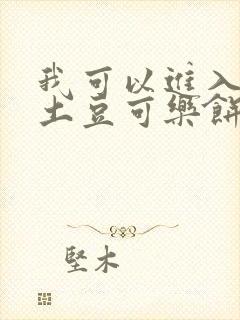 我可以進入
土豆可樂餅
堅木